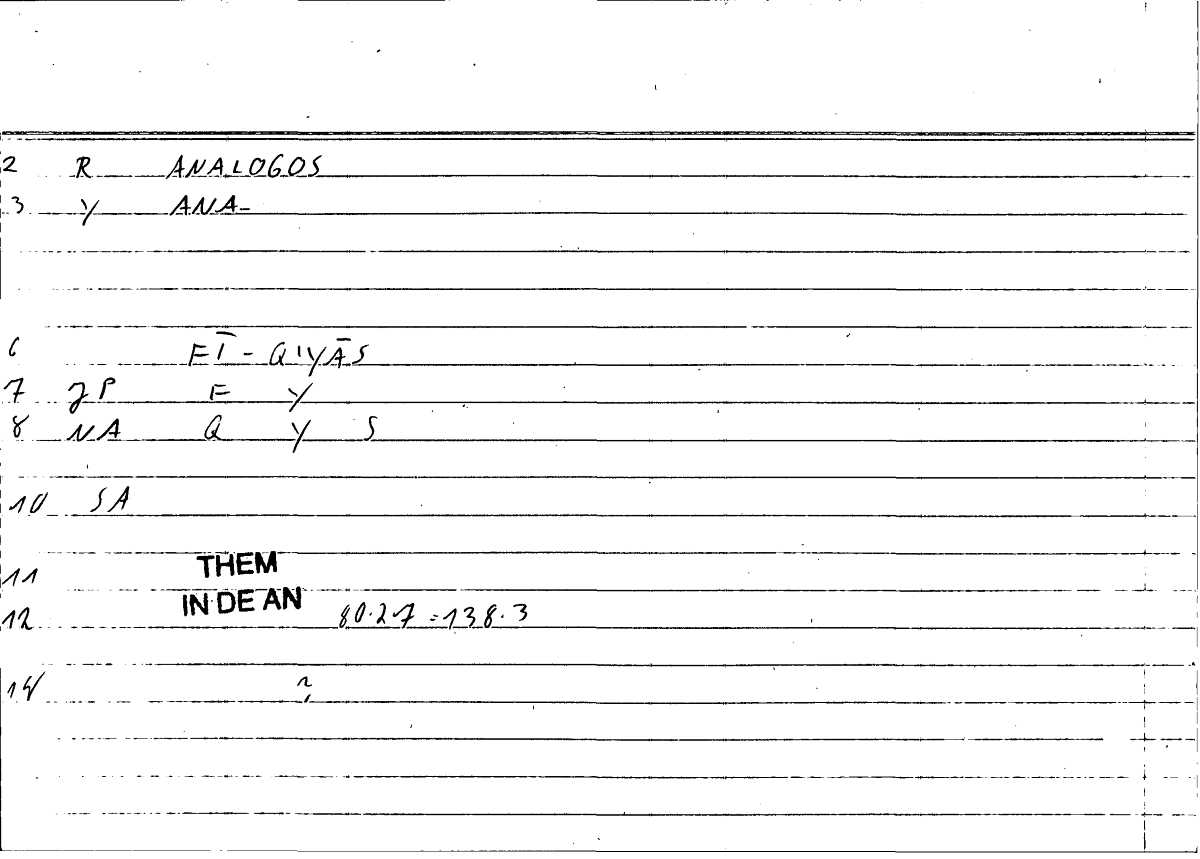 2 R ANALOGOS
3 Y ANA-
6 FĪ-QIYĀS
7 JP F Y
8 NA Q Y S
10 SA
11 THEM
IN DE AN
12 80.27=138.3
14